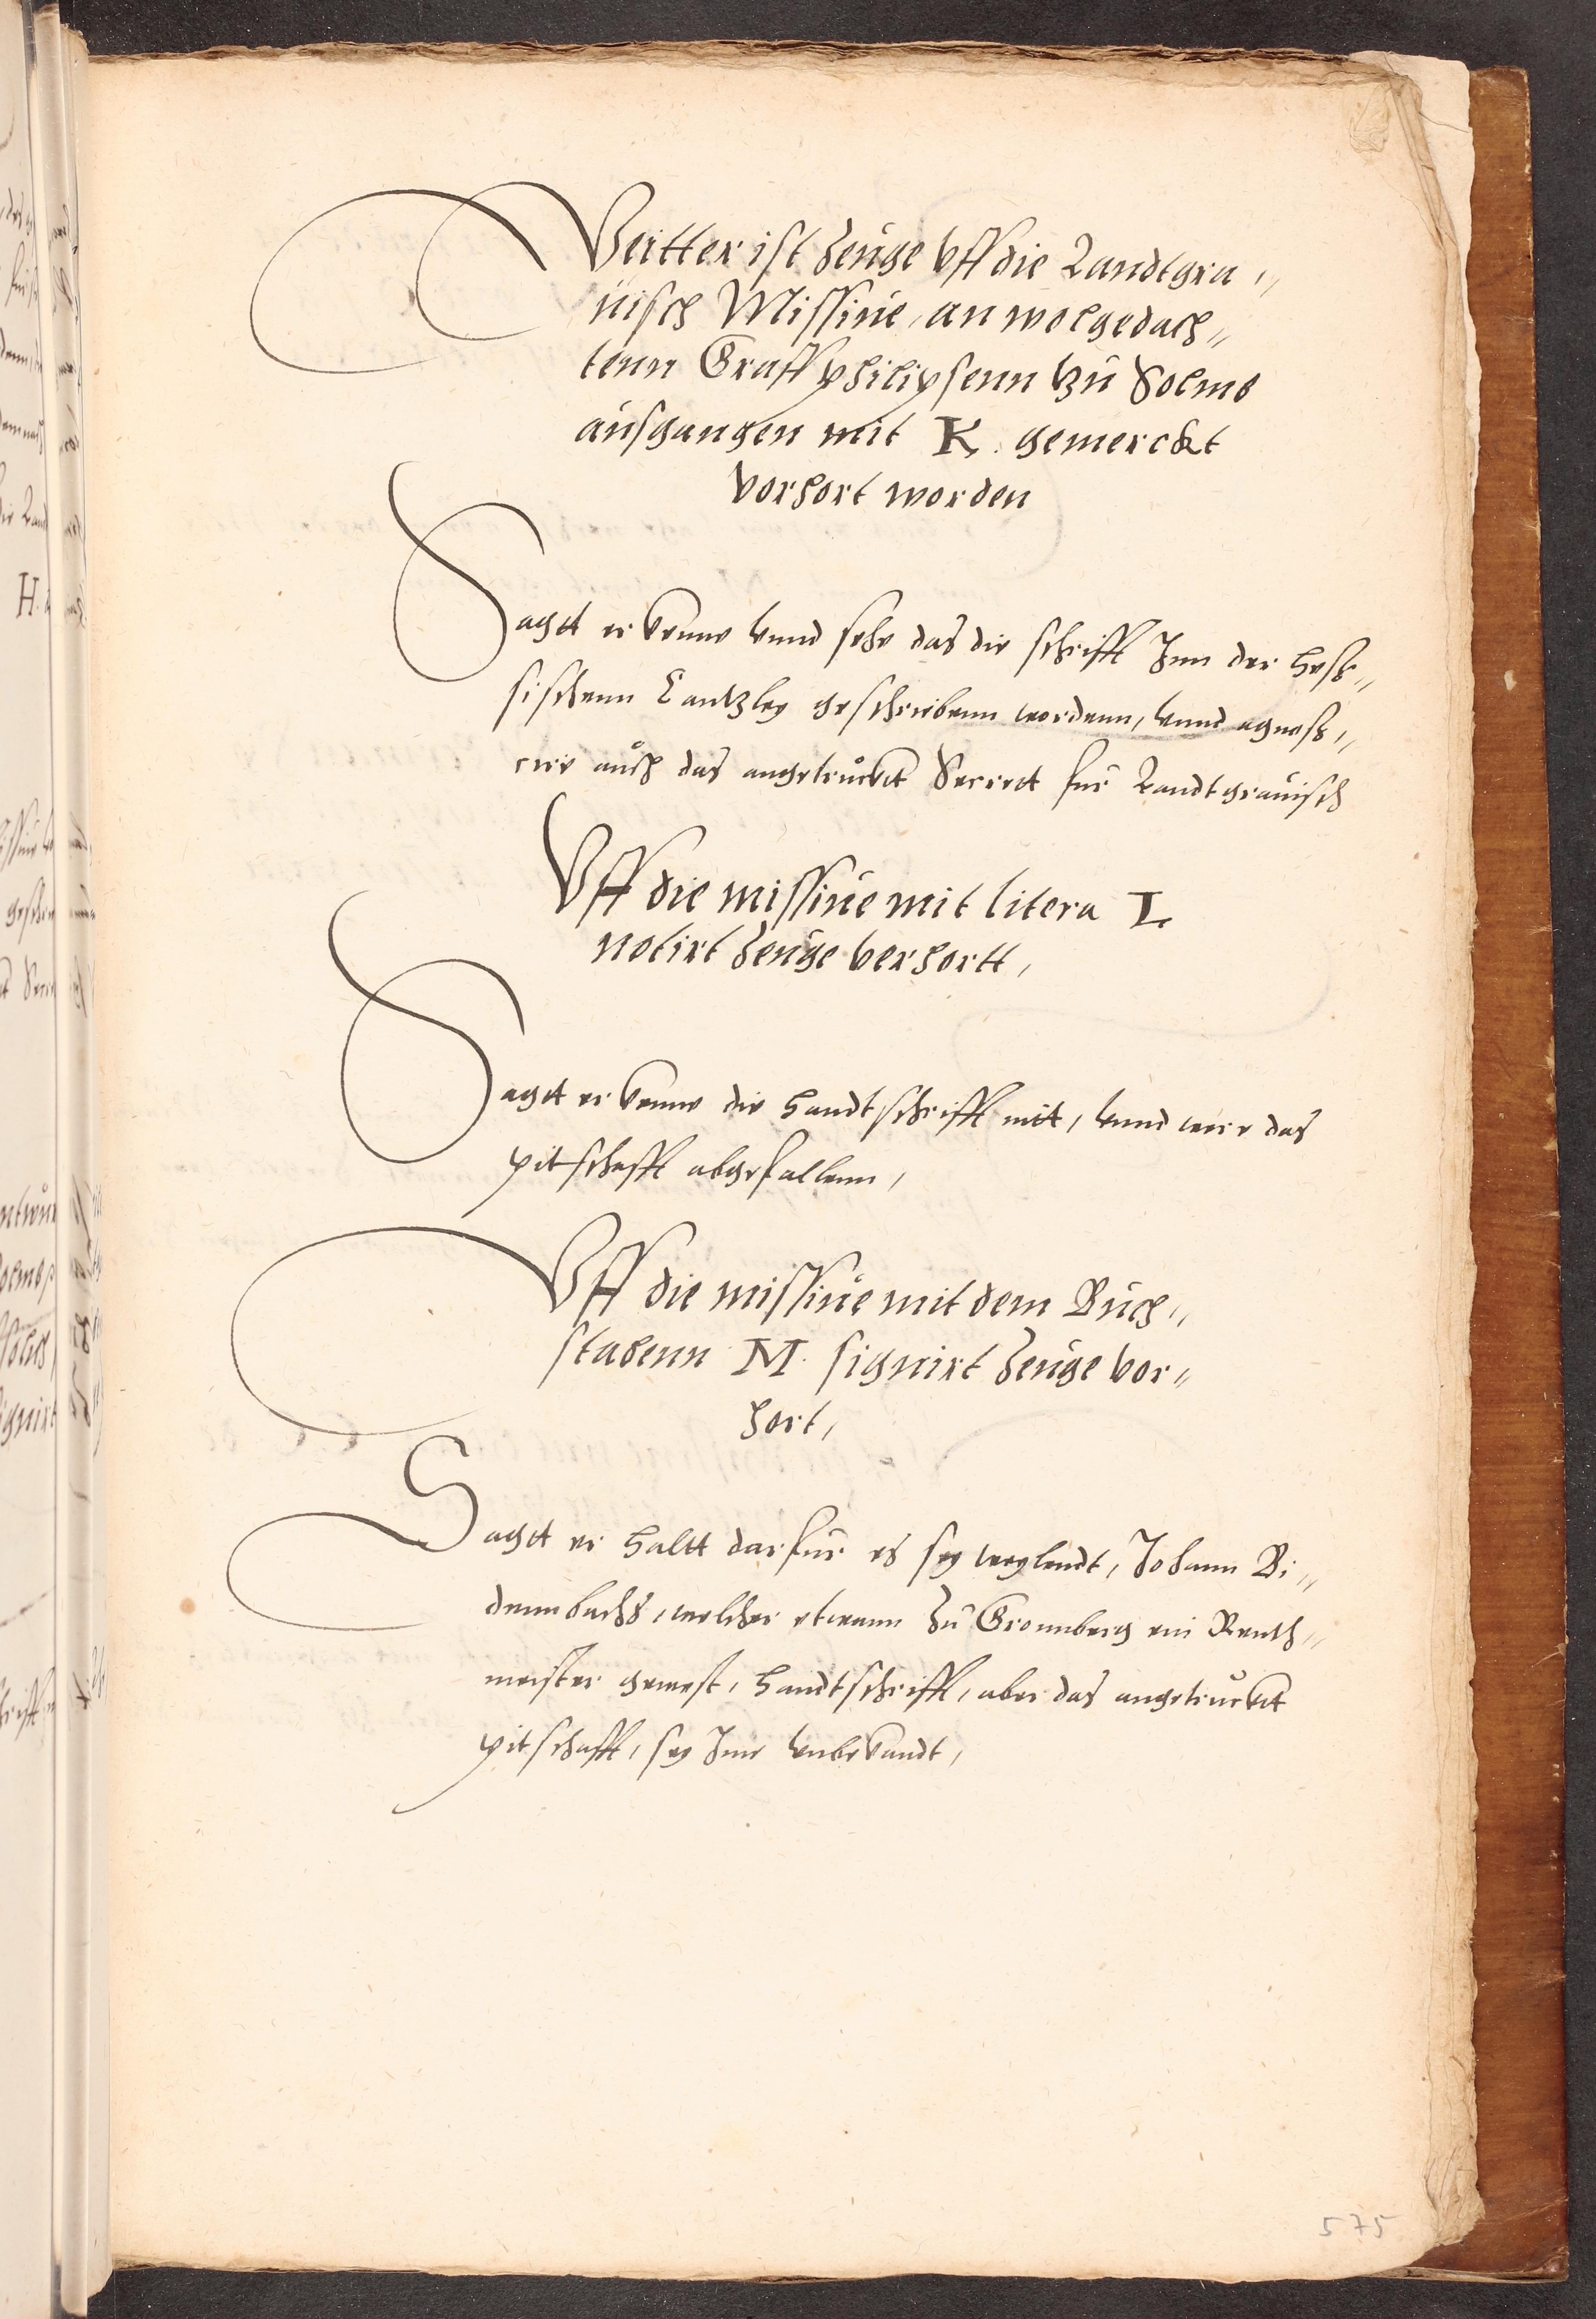 Weitter ist Zeuge vff die Landtgra„
uisch Missiue, an wolgedach„
tenn Graff philipsenn tzu Solms
ausgangen mit K. gemerckt
vorhort worden
Sagtt er kenne vnnd sehe das die schrifft Inn der Hess„
sischenn Cantzley geschriebenn wordenn, vnnd agnoss„
cire auch das angetruckt Secrett fur Landtgrauisch
Vff die missiue mit litera L
notirt Zeuge verhortt,
Sagtt er kenne die Handtschrifft nitt, vnnd were das
pitschafft abgefallenn,
Vff die missiue mit dem Buch„
stabenn M. signirt Zeuge vor„
hort,
Sagtt er haltt darfur es sey weylandt, Johann Bi„
dennbachs, welcher etwann zu Gronnberg ein Renth„
meister gewest, Handtschrifft, aber das angetruckt
pitschafft, sey Ime vnbekandt,
575